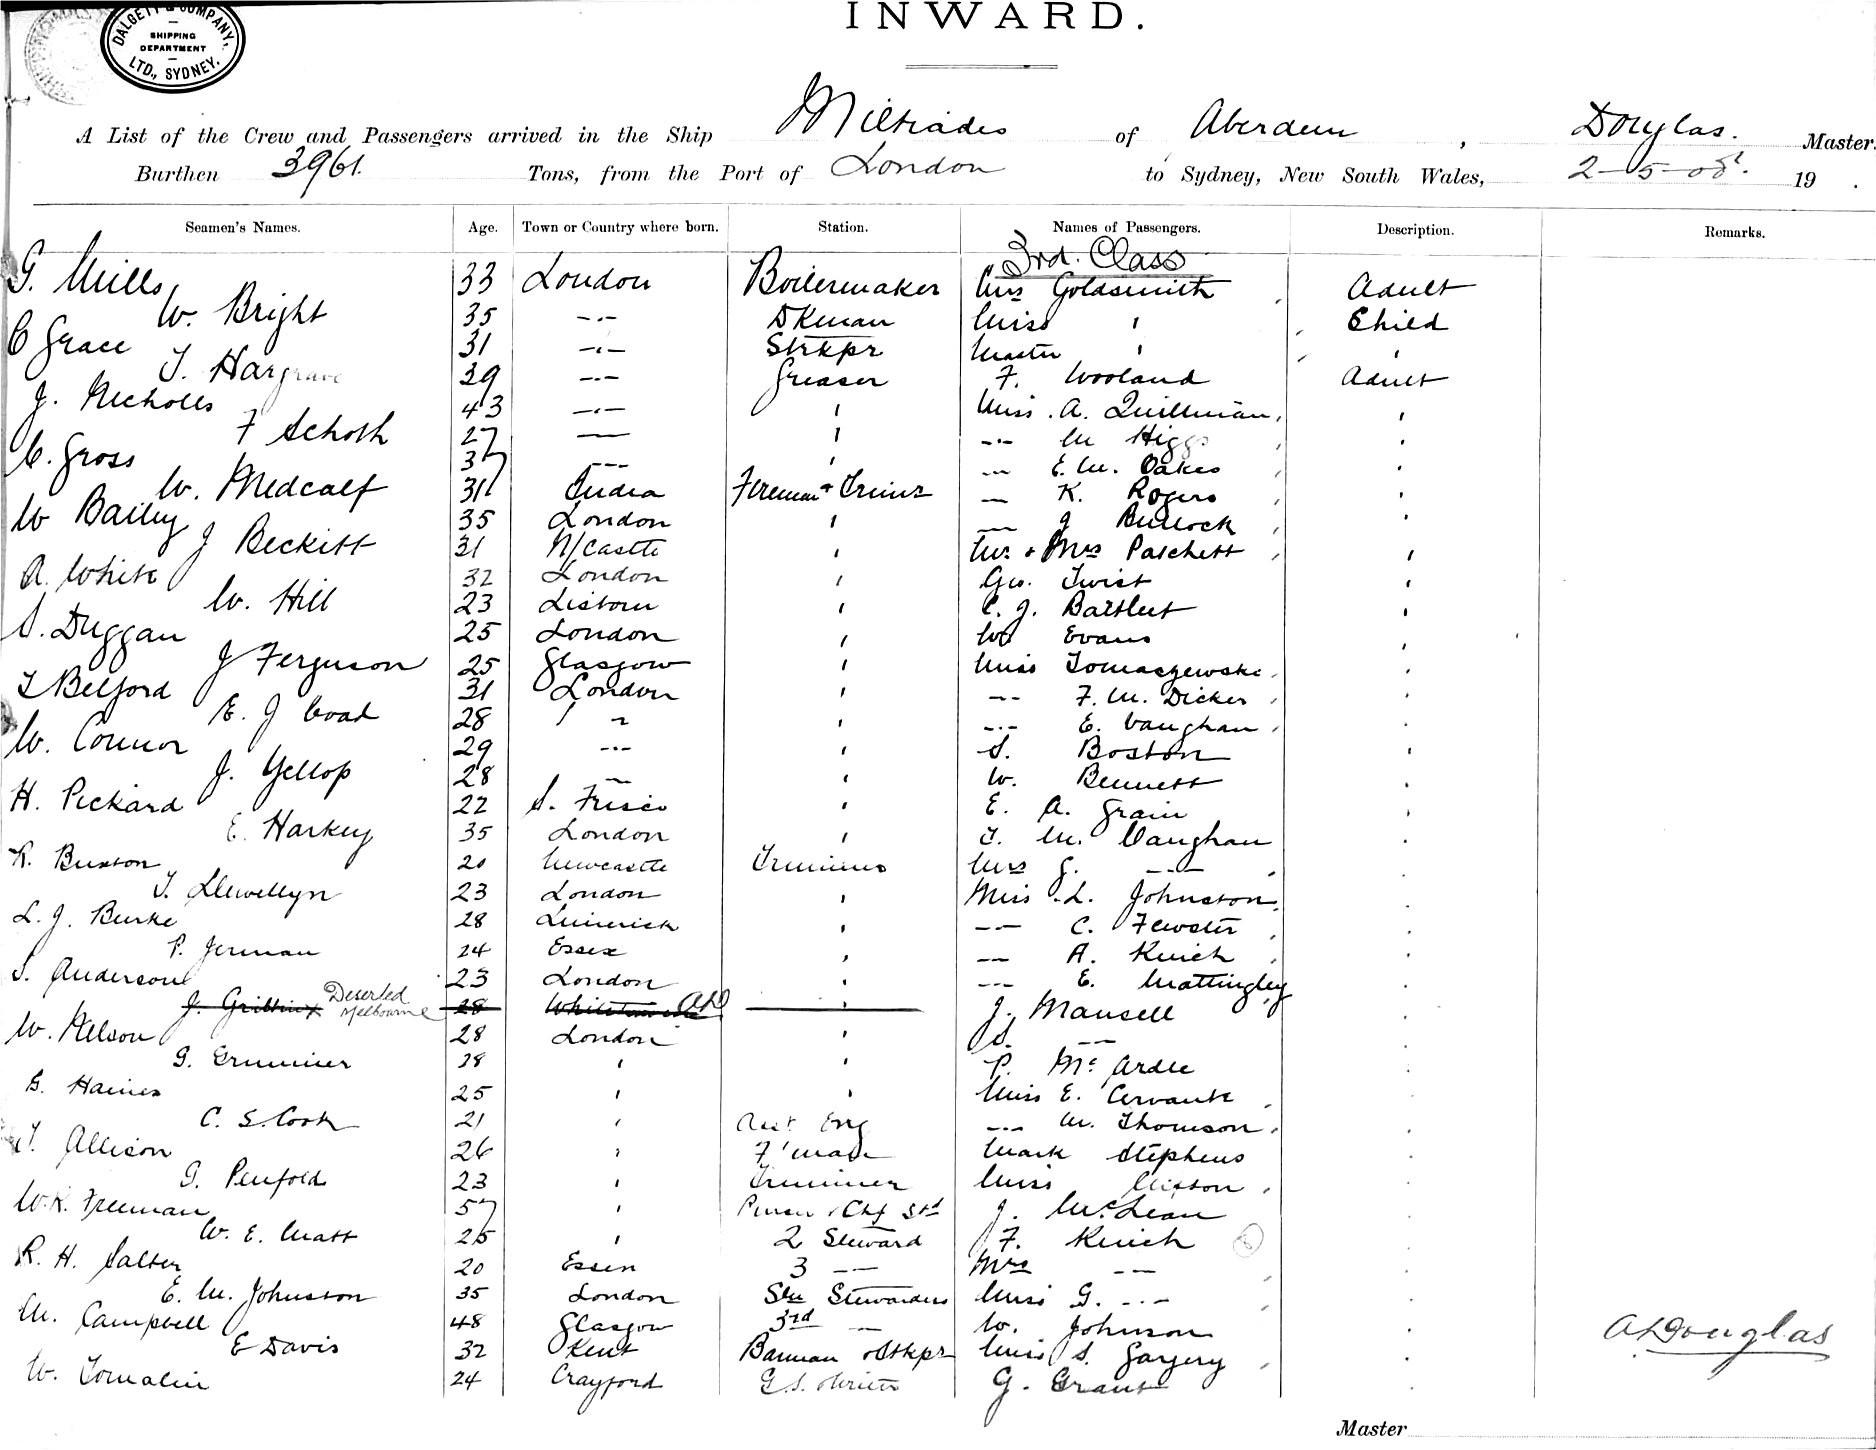 DALGETY & COMPANY, LTD., SYDNEY.
SHIPPING DEPARTMENT
INWARD.
A List of the Crew and Passengers arrived in the Ship Miltiades of Aberdeen, Douglas. Master.
Burthen 3961. Tons, from the Port of London to Sydney, New South Wales, 2-5-08. 19 .
Seamen's Names. Age. Town or Country where born. Station. Names of Passengers. Description. Remarks.
3rd. Class
G. Mills 33 London Boilermaker Mrs Goldsmith Adult
W. Bright 35 -·- DKman Miss ' Child
C Grace 31 -·- Strkpr Master ' '
T. Hargrave 39 -·- Greaser F. Wooland Adult
J. Nicholls 43 -·- ' Miss. A. Quillman '
F Schoth 27 — ' -·- M Higgs '
C. Gross 37 --- ' -- E. M. Oakes '
W. Medcalf 31 India Fireman + Trimr — K. Rogers '
W Bailey 35 London ' — J Bullock '
J Beckitt 31 N/Castle ' Mr. + Mrs Patchett '
A. White 32 London ' Geo. Twist '
W. Hill 23 Listown ' C. J. Bartlett '
S. Duggan 25 London ' W Evans '
J Ferguson 25 Glasgow ' Miss Tomaszewski '
T Belford 31 London ' -- F. M. Dicker '
E. J Coad 28 ' ' -·- E. Vaughan '
W. Connor 29 -·- ' S. Boston '
J. Yellop 28 — ' W. Bennett '
H. Pickard 22 S. Frisco ' E. A. Grain '
E. Harkey 35 London ' T. M. Vaughan
R. Buxton 20 Newcastle Trimmer Mrs G. -·-
T. Llewellyn 23 London ' Miss. L. Johnston
L. J. Burke 28 Limerick ' -- C. Fewster
P. Jerman 24 Essex ' — A. Kinch
S. Anderson 23 London ' --- E. Mattingley
J. Deserted Melbourne 28 ALD ' J. Mansell
W. Nelson 28 London ' S. --
G. Grummer 28 ' ' P. McArdle
G. Haines 25 ' ' Miss E.
C. S. Cook 21 ' Asst Eng -·- M. Thomson
T. Allison 26 ' F'man Mark Stephens
G. Penfold 23 ' Trimmer Miss Clifton
W. R. Freeman 57 ' Purser + Chf Std J. McLean
W. E. Matt 25 ' 2 Steward F. Kinch
R. H. Salter 20 Essex 3 -- Mrs --
E. M. Johnston 35 London Stewardess Miss G. -·-
M. Campbell 48 Glasgow 3rd — W. Johnson
E Davis 32 Kent Barman + Stkpr Miss S. Gargery
W. Tomalin 24 Crayford G. S. + Writer G. Grant
ALDouglas
Master